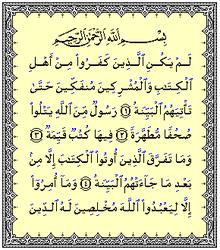 بِسْمِ ٱللَّهِ ٱلرَّحْمَٰنِ ٱلرَّحِيمِ
لَمْ يَكُنِ ٱلَّذِينَ كَفَرُوا۟ مِنْ أَهْلِ
ٱلْكِتَٰبِ وَٱلْمُشْرِكِينَ مُنفَكِّينَ حَتَّىٰ
تَأْتِيَهُمُ ٱلْبَيِّنَةُ ١ رَسُولٌ مِّنَ ٱللَّهِ يَتْلُوا۟
صُحُفًا مُّطَهَّرَةً ٢ فِيهَا كُتُبٌ قَيِّمَةٌ ٣
وَمَا تَفَرَّقَ ٱلَّذِينَ أُوتُوا۟ ٱلْكِتَٰبَ إِلَّا مِنۢ
بَعْدِ مَا جَآءَتْهُمُ ٱلْبَيِّنَةُ ٤ وَمَآ أُمِرُوٓا۟
إِلَّا لِيَعْبُدُوا۟ ٱللَّهَ مُخْلِصِينَ لَهُ ٱلدِّينَ